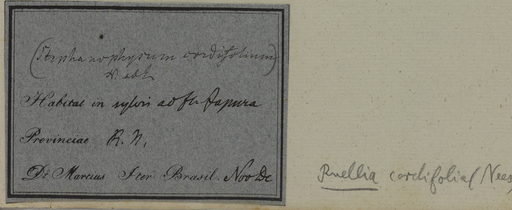 (Stephanophysum cordifolium)
Habitat in sylvis ad fl. Japura
Provinciae R. N.
Dr Martius Iter Brasil. Nov Dc
Ruellia cordifolia Nees